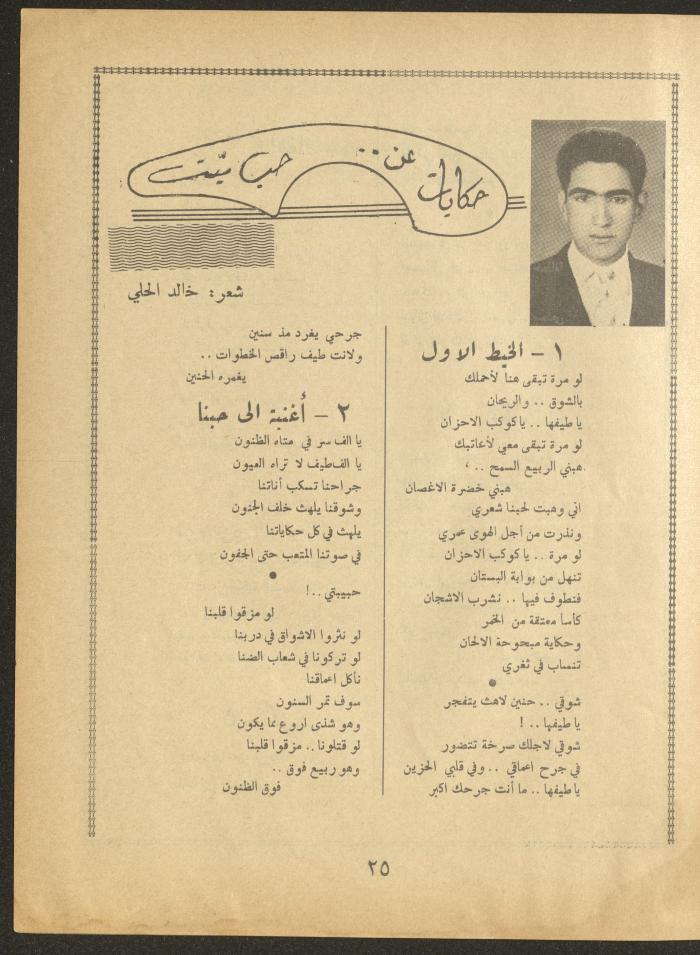 حكايات عن .. حب ميّت
شعر : خالد الحلي
١ - الخيط الاول
لو مرة تبقى هنا لأحملك
بالشوق .. والريحان
يا طيفها .. ياكوكب الاحزان
لو مرة تبقى معي لأعاتبك
هبني الربيع السمح .. ،
هبني خضرة الاغصان
اني وهبت لحبنا شعري
ونذرت من أجل الهوى عمري
لو مرة .. ياكوكب الاحزان
تنهل من بوابة البستان
فنطوف فيها .. نشرب الاشجان
كأسا معتقة من الخمر
وحكاية مبحوحة الالحان
تنساب في ثغري
●
شوقي .. حنين لاهث يتفجر
يا طيفها .. !
شوقي لاجلك صرخة تتضور
في جرح اعماقي .. وفي قلبي الحزين
يا طيفها .. ما أنت جرحك اكبر
جرحي يغرد مذ سنين
ولانت طيف راقص الخطوات ..
يغمره الحنين
٢ - أغنية الى حبنا
يا الف سر في متاه الظنون
يا الف طيف لا تراه العيون
جراحنا تسكب أناتنا
وشوقنا يلهث خلف الجنون
يلهث في كل حكاياتنا
في صوتنا المتعب حتى الجفون
●
حبيبتي .. !
لو مزقوا قلبنا
لو نثروا الاشواق في دربنا
لو تركونا في شعاب الضنا
نأكل اعماقنا
سوف تمر السنون
وهو شذى اروع مما يكون
لو قتلونا .. مزقوا قلبنا
وهو ربيع فوق ..
فوق الظنون
٢٥